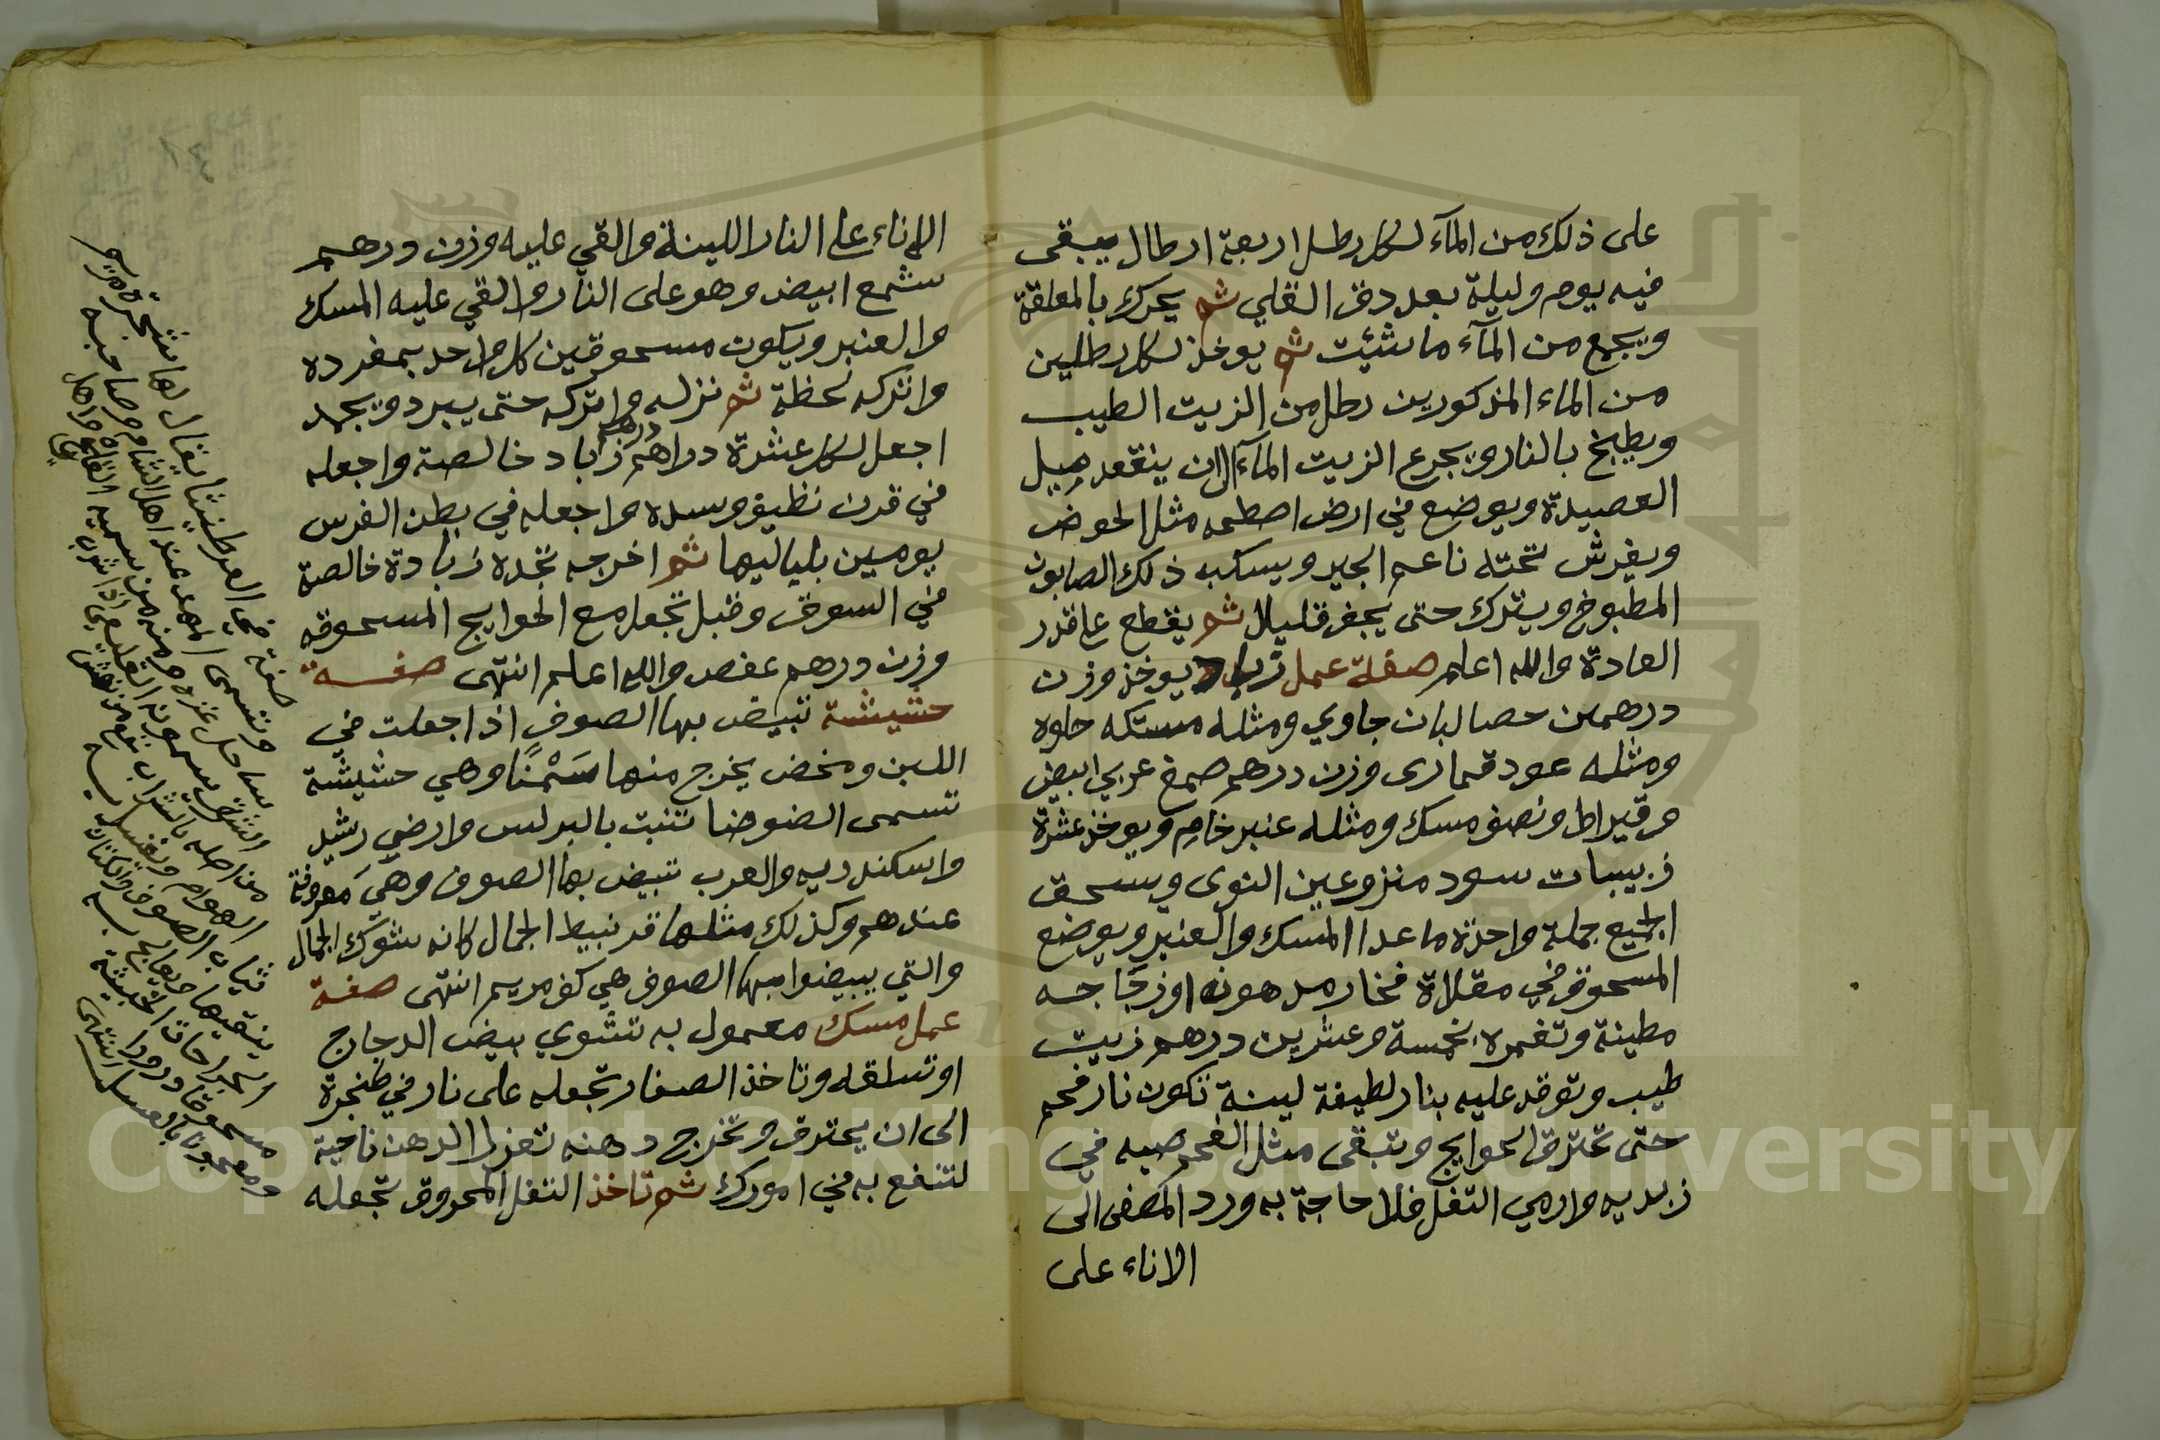 على ذلك من المآء لكل رطل اربعة ارطال يبقى
فيه يوم وليلة بعد دق القلي ثم يحرك بالمعلقة
ويجمع من المآء ما شئت ثم يوخذ لكل رطلين
من الماء المذكورين رطل من الزيت الطيب
ويطبخ بالنار ويجرع الزيت المآء الى ان ينقعد
العصيدة ويوضع في ارض مثل الحوض
ويفرش تحته ناعم الجير ويسكب ذلك الصابون
المطبوخ ويترك حتى يجف قليال ثم يقطع على قدر
العادة والله اعلم صفة عمل زباد يوخذ وزن
درهمين حصا لبان جاوي ومثله مستكه حلوه
ومثله عود قمارى وزن درهم صمغ عربي ابيض
وقيراط ونصف مسك ومثله عنبر خام ويوخذ عشرة
زبيبات سود منزوعين النوى ويسحق
الجميع جملة واحدة ما عدا المسك والعنبر ويوضع
المسحوق في مقلاة فخار مدهونه او زجاجه
مطينة وتغمره بخمسة وعشرين درهم زيت
طيب وتوقد عليه بنار لطيفة لينة تكون نار فحم
حتى تحترق الحوايج وتبقى مثل الفحم صبه في
زبديه وارمي التفل فلا حاجة به ورد المصفى الى
الاناء على
الاناء على النار اللينة والقي عليه وزن درهم
شمع ابيض وهو على النار والقي عليه المسك
والعنبر ويكون مسحوقين كل واحد بمفرده
واتركه لحظة ثم نزله واتركه حتى يبرد ويجمد
اجعل لكل عشرة دراهم درهم زباد خالصة واجعله
في قرن نظيف وسده واجعله في بطن الفرس
يومين بلياليهما ثم اخرجه تجده زبادة خالصة
في السوق وقبل تجعل مع الحوايج المسحوقه
وزن درهم عفص والله اعلم انتهى صفة
حشيشة تبيض بها الصوف اذا جعلت في
اللبن ومخض يخرج منها سَمْنًا وهي حشيشة
تسمى الضوضا تنبت بالبرلس وارضي رشيد
واسكندريه والعرب تبيض بها الصوف وهي معروفة
عندهم وكذلك مثلها قرنبيط الجمال كانه شوك الجمال
والتي يبيضوا بها الصوف هي كف مريم انتهى صفة
عمل مسك معمول به تشوي بيض الدجاج
او تسلقه وتاخذ الصفار تجعله على نار في طنجرة
الى ان يحترق وتخرج دهنه تعزل الدهن ناحية
لتنفع به في امورك ثم تاخذ التفل المحروق تجعله
صفة في العرطنيثا يقال لها شجرة مريم
وتسمى عند اهل الشام
ساحل غزه ومنه من يسميه
الشرق يسمونه
من اصله بالشراب نفع من نهش
الهوام ويغسل به
ثياب الصوف والكتان
ينقيها ويعالج به
الجراحات الخبيثة
مسحوقا وذرورا
ومعجونا بالعسل انتهى